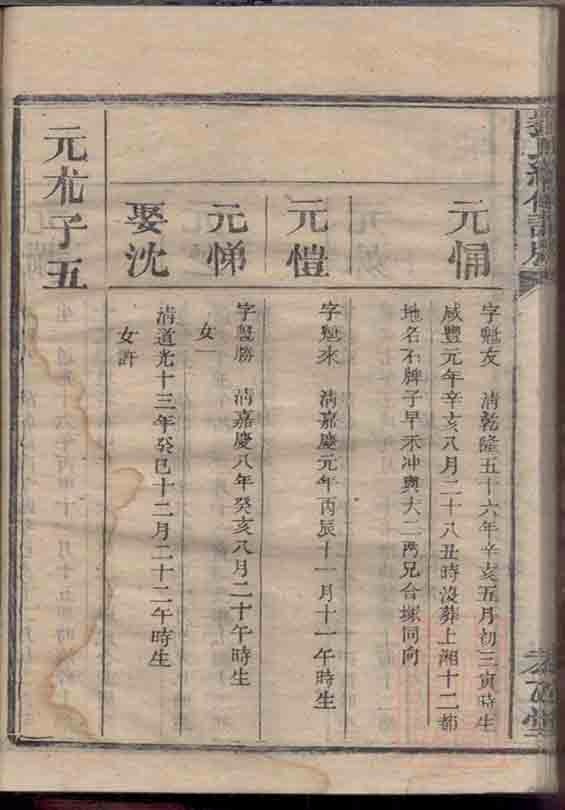 元悀
字魁友 清乾隆五十六年辛亥五月初三寅時生
咸豐元年辛亥八月二十八丑時沒葬上湘十二都
地名石牌子早禾冲與大二兩兄合塚同向
元愷
字魁來 清嘉慶元年丙辰十一月十一午時生
元悌
字魁勝 清嘉慶八年癸亥八月二十午時生
女一
娶沈
清道光十三年癸巳十二月二十二午時生
女許
元朮子五